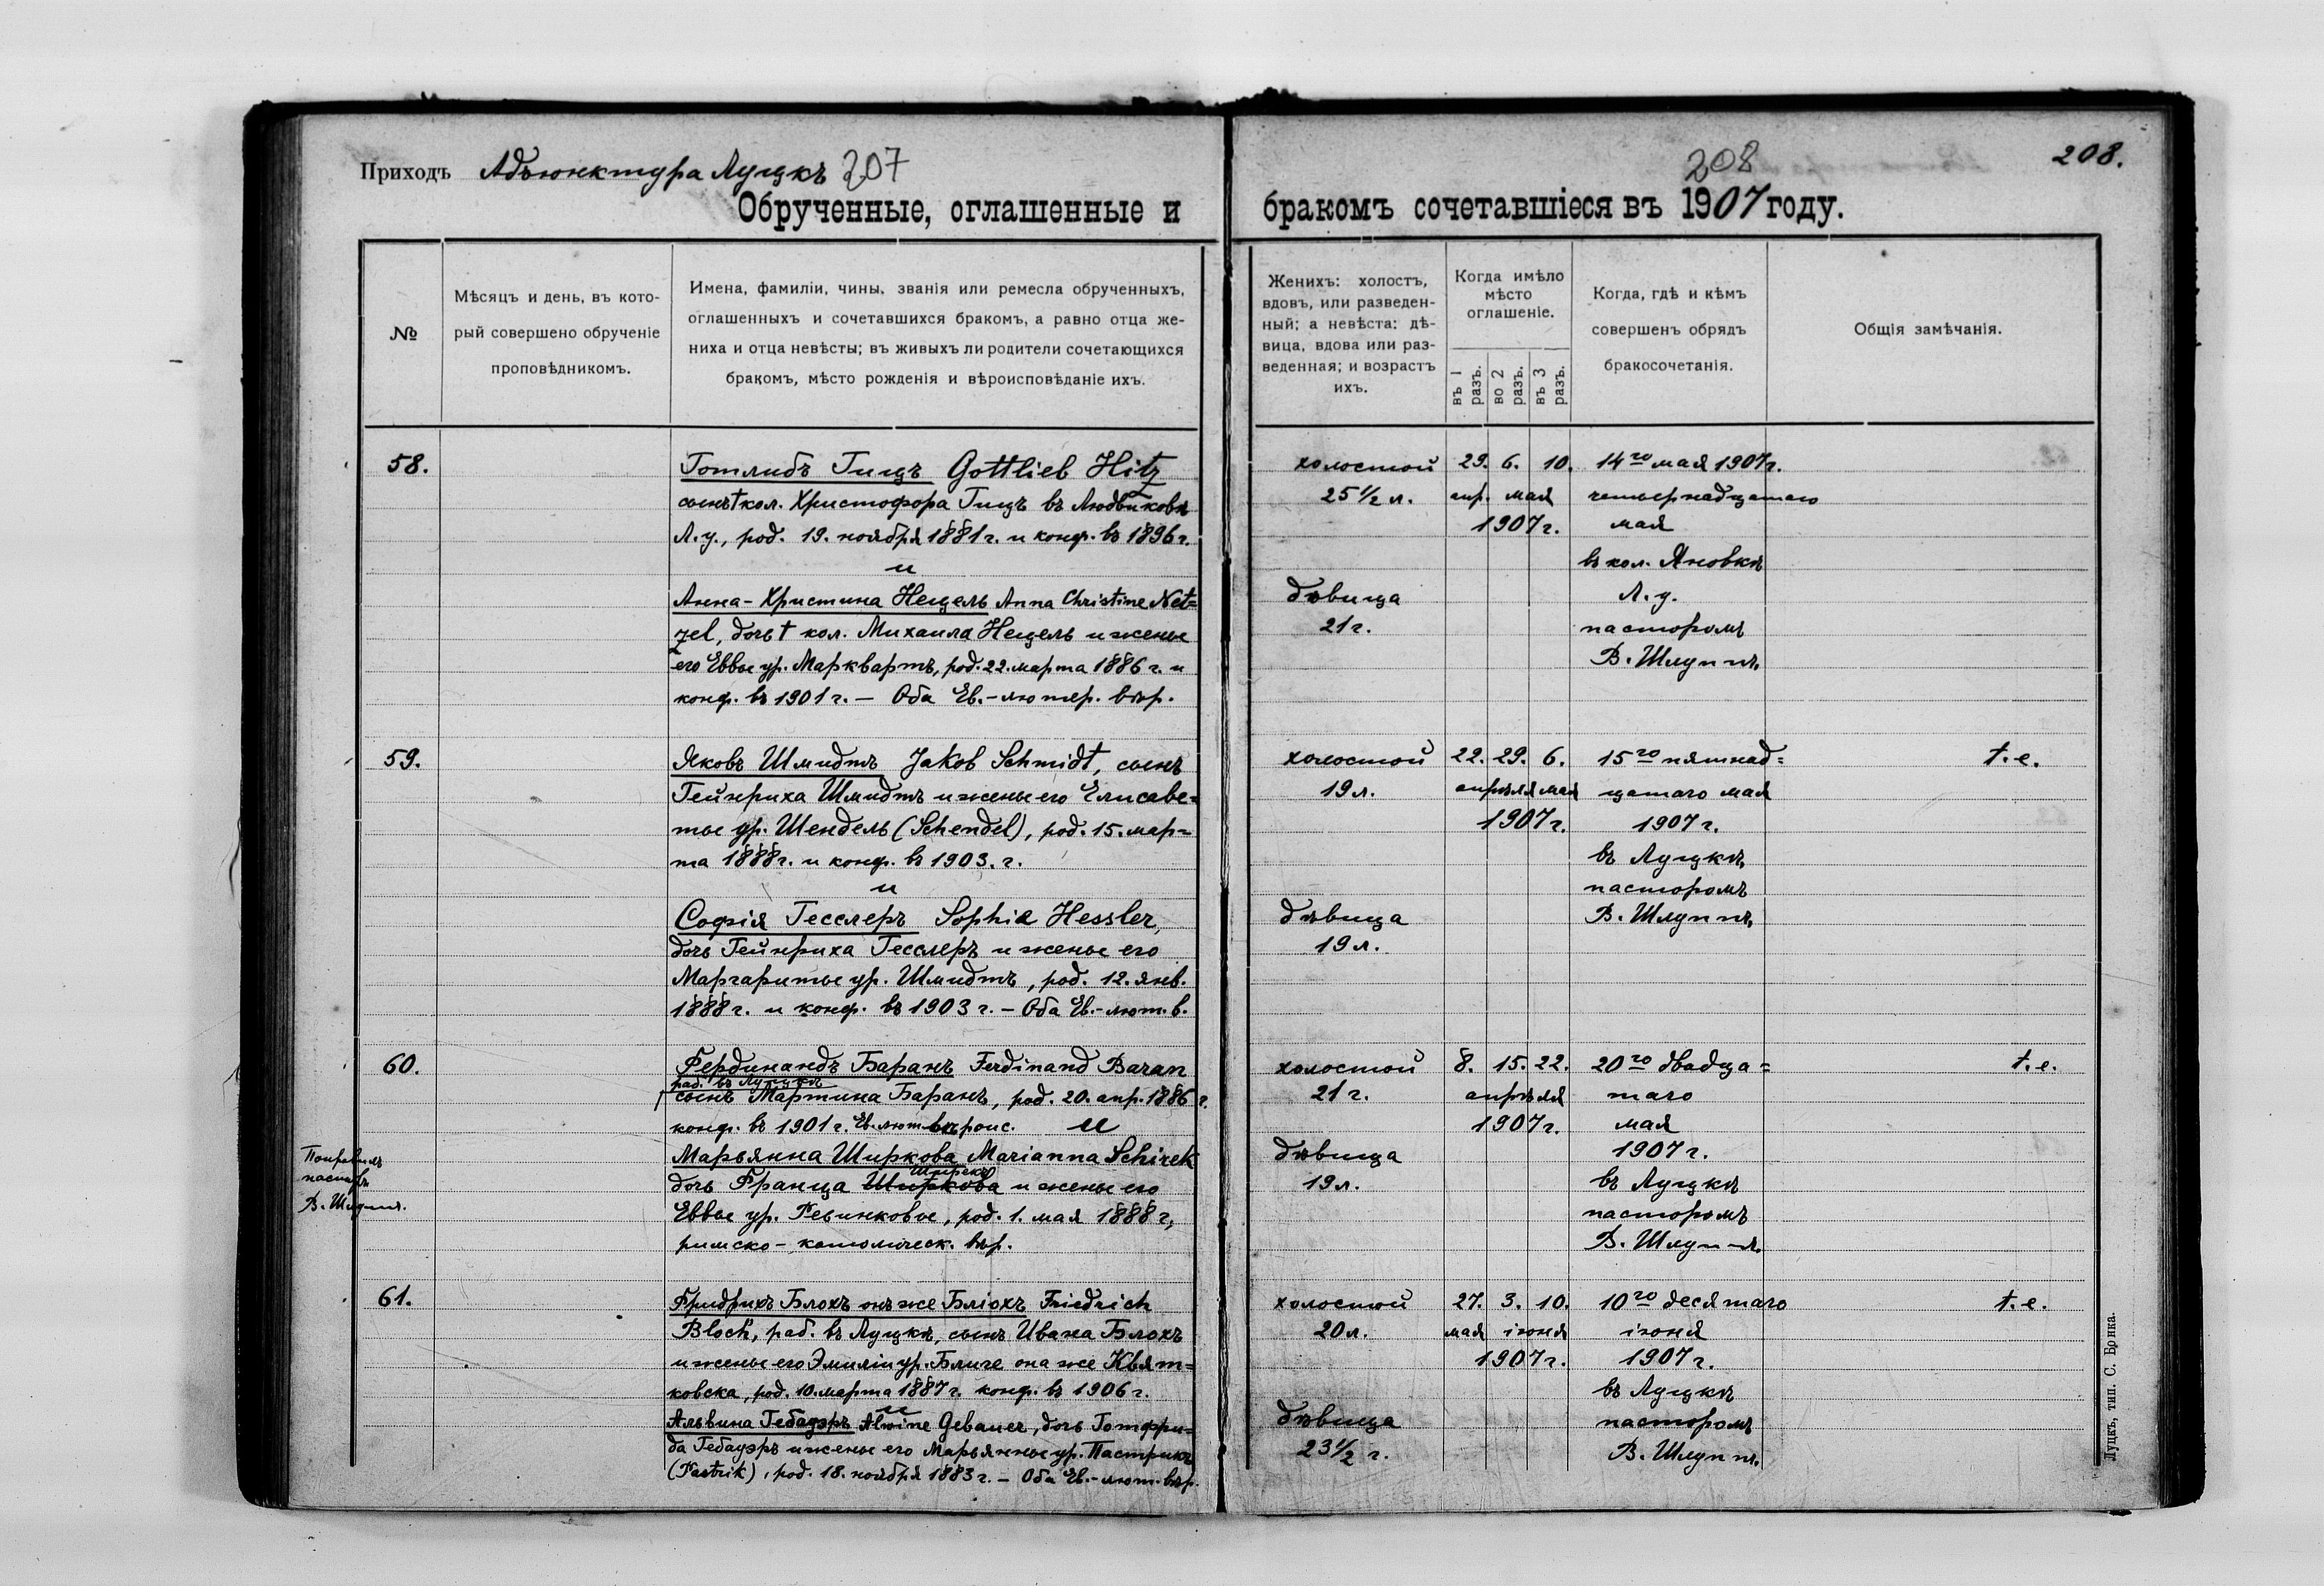 Приходъ Адъюнктура Луцкъ 207
Обрученные, оглашенные и
№
Мѣсяцъ и день, въ кото-
рый совершено обрученіе
проповѣдникомъ.
Имена, фамиліи, чины, званія или ремесла обрученныхъ,
оглашенныхъ и сочетавшихся бракомъ, а равно отца же-
ниха и отца невѣсты; въ живыхъ ли родители сочетающихся
бракомъ, мѣсто рожденія и вѣроисповѣданіе ихъ.
58.
Готлибъ Гицъ Gottlieb Hitz
сынъ † кол. Христофора Гицъ въ Людвиковкѣ
Л.у., род. 19. ноября 1881 г. и конф. въ 1896 г.
и
Анна-Христина Нецель Anna Christine Net=
zel, дочь † кол. Михаила Нецель и жены
его Еввы ур. Марквартъ, род. 22. марта 1886 г. и
конф. въ 1901 г. — Оба Ев.-лютер. вѣр.
59.
Яковъ Шмидтъ Jakob Schmidt, сынъ
Гейнриха Шмидтъ и жены его Елисаве=
ты ур. Шендель (Schendel), род. 15. мар=
та 1888 г. и конф. въ 1903. г.
и
Софія Гесслеръ Sophia Hessler,
дочь Гейнриха Гесслеръ и жены его
Маргариты ур. Шмидтъ, род. 12. янв.
1888 г. и конф. въ 1903 г. — Оба Ев.-лют. в.
60.
Фердинандъ Баранъ Ferdinand Baran
раб. въ Луцкѣ
сынъ Мартина Баранъ, род. 20. апр. 1886 г.
конф. въ 1901 г. Ев. лют. вѣроис. и
Марьянна Ширкова Marianna Schirek
Ширекъ
дочь Франца Ширкова и жены его
Еввы ур. Ревинковой, род. 1. мая 1888 г,
римско-католическ. вѣр.
Поправилъ
пасторъ
В. Шлуппъ.
61.
Фридрихъ Блохъ онъ же Бліохъ Friedrich
Bloch, раб. въ Луцкѣ, сынъ Ивана Блохъ
и жены его Эмиліи ур. Блиге она же Квят=
ковска, род. 10. марта 1887 г. конф. въ 1906 г.
и
Альвина Гебауэръ Alwine Gebauer, дочь Готфри=
да Гебауэръ и жены его Марьянны ур. Пастрикъ
(Pastrik), род. 18. ноября 1883 г. — Оба Ев.-лют. вѣр.
208
208.
бракомъ сочетавшіеся въ 1907 году.
Женихъ: холостъ,
вдовъ, или разведен-
ный; а невѣста: дѣ-
вица, вдова или раз-
веденная; и возрастъ
ихъ.
Когда имѣло
мѣсто
оглашеніе.
въ 1 разъ.
во 2 разъ.
въ 3 разъ.
Когда, гдѣ и кѣмъ
совершенъ обрядъ
бракосочетанія.
Общія замѣчанія.
холостой 29. 6. 10. 14го мая 1907 г.
25 1/2 л. апр. мая четырнадцатаго
1907 г. мая
въ кол. Яновкѣ
дѣвица Л.у.
21 г. пасторомъ
В. Шлуппъ.
холостой 22. 29. 6. 15го пятнад= t.e.
19 л. апрѣля мая цатаго мая
1907 г. 1907 г.
въ Луцкѣ
пасторомъ
дѣвица В. Шлуппъ.
19 л.
холостой 8. 15. 22. 20го двадца= t.e.
21 г. апрѣля таго
1907 г. мая
дѣвица 1907 г.
19 л. въ Луцкѣ
пасторомъ
В. Шлуппъ.
холостой 27. 3. 10. 10го десятаго t.e.
20 л. мая іюня іюня
1907 г. 1907 г.
въ Луцкѣ
дѣвица пасторомъ
23 1/2 г. В. Шлуппъ.
Луцкъ, тип. С. Брика.